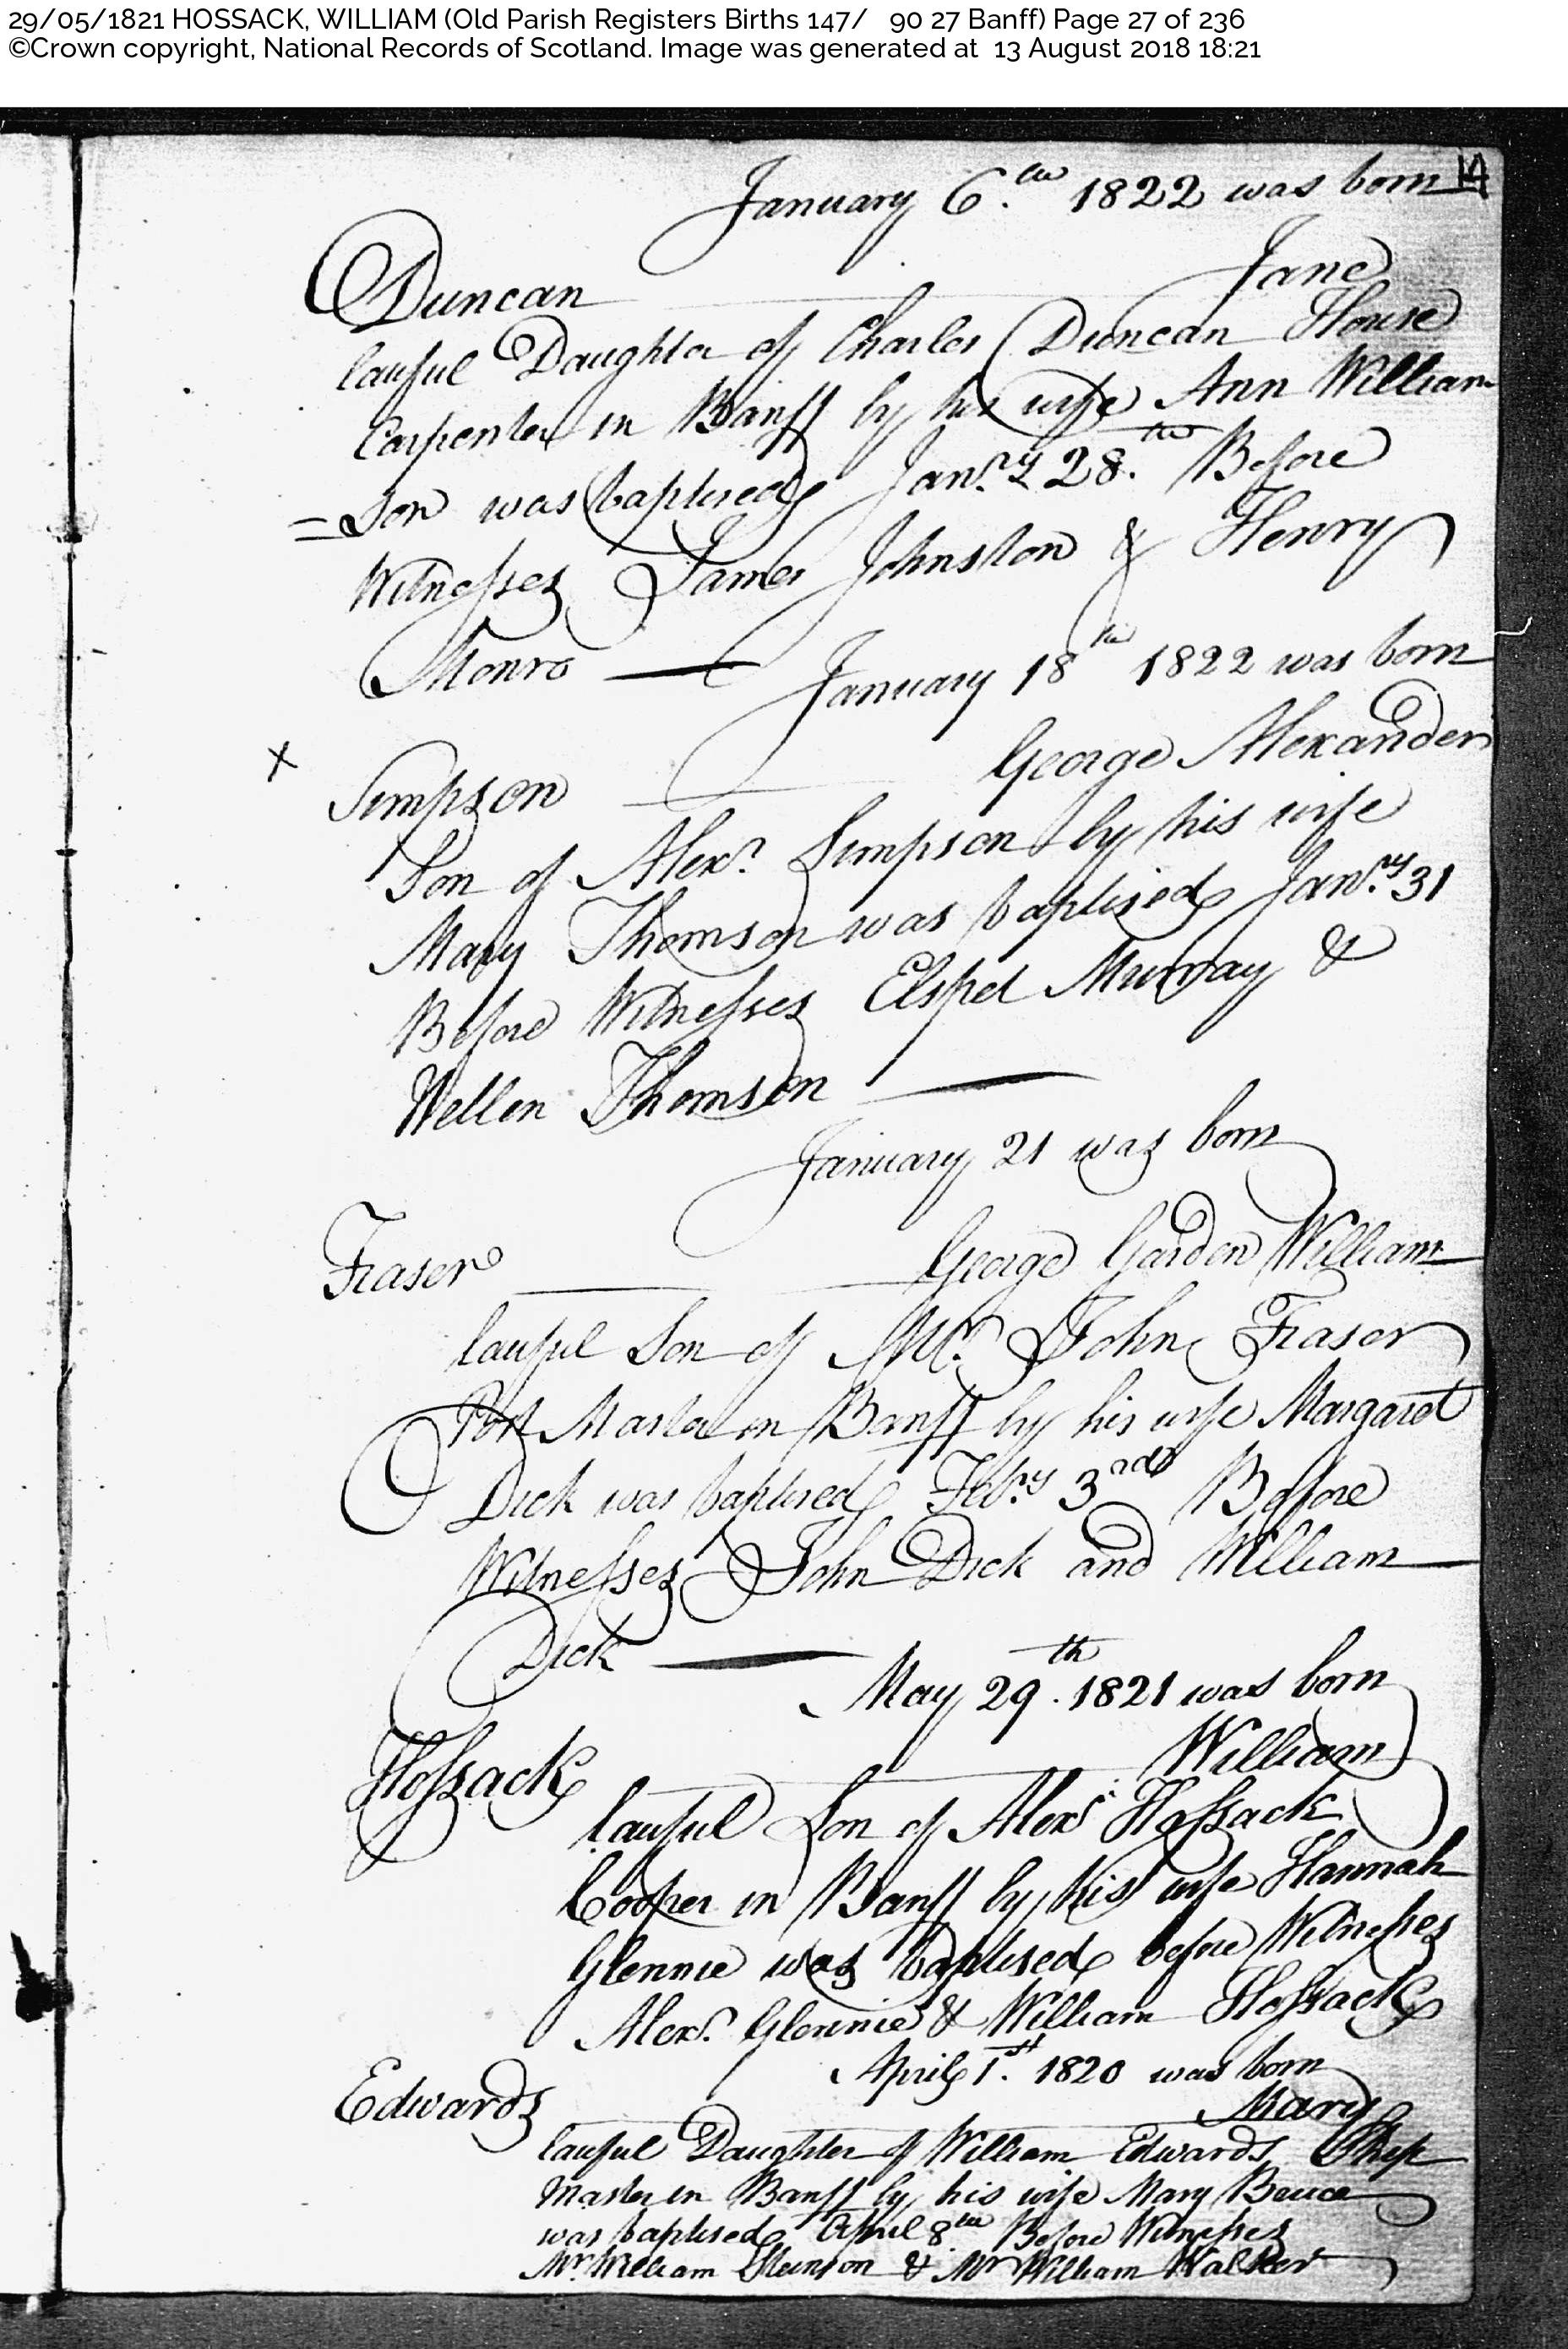 29/05/1821 HOSSACK, WILLIAM (Old Parish Registers Births 147/ 90 27 Banff) Page 27 of 236
©Crown copyright, National Records of Scotland. Image was generated at 13 August 2018 18:21
January 6.th 1822 was born
Duncan Jane
lauful Daughter of Charles Duncan House
Carpenter in Banff by his wife Ann William
=son was baptised Janry 28.th Before
Witnesses James Johnston & Henry
Monro
January 18th 1822 was born
x Simpson George Alexander
Son of Alexr. Simpson by his wife
Mary Thomson was baptised Janry 31
Before Witnesses Elspet Murray &
Hellen Thomson
January 21 was born
Fraser George Garden William
lauful Son of Mr. John Fraser
Post Master in Banff by his wife Margaret
Dick was baptised Febry 3rd Before
Witnesses John Dick and William
Dick
May 29th. 1821 was born
Hossack William
lauful Son of Alexr Hossack
Cooper in Banff by his wife Hannah
Glennie was baptised before Witnesses
Alexr. Glennie & William Hossack
April 1st. 1820 was born
Edwards Mary
lauful Daughter of William Edwards Ship
Master in Banff by his wife Mary Bruce
was baptised April 8th Before Witnesses
Mr. William & Mr William Walker